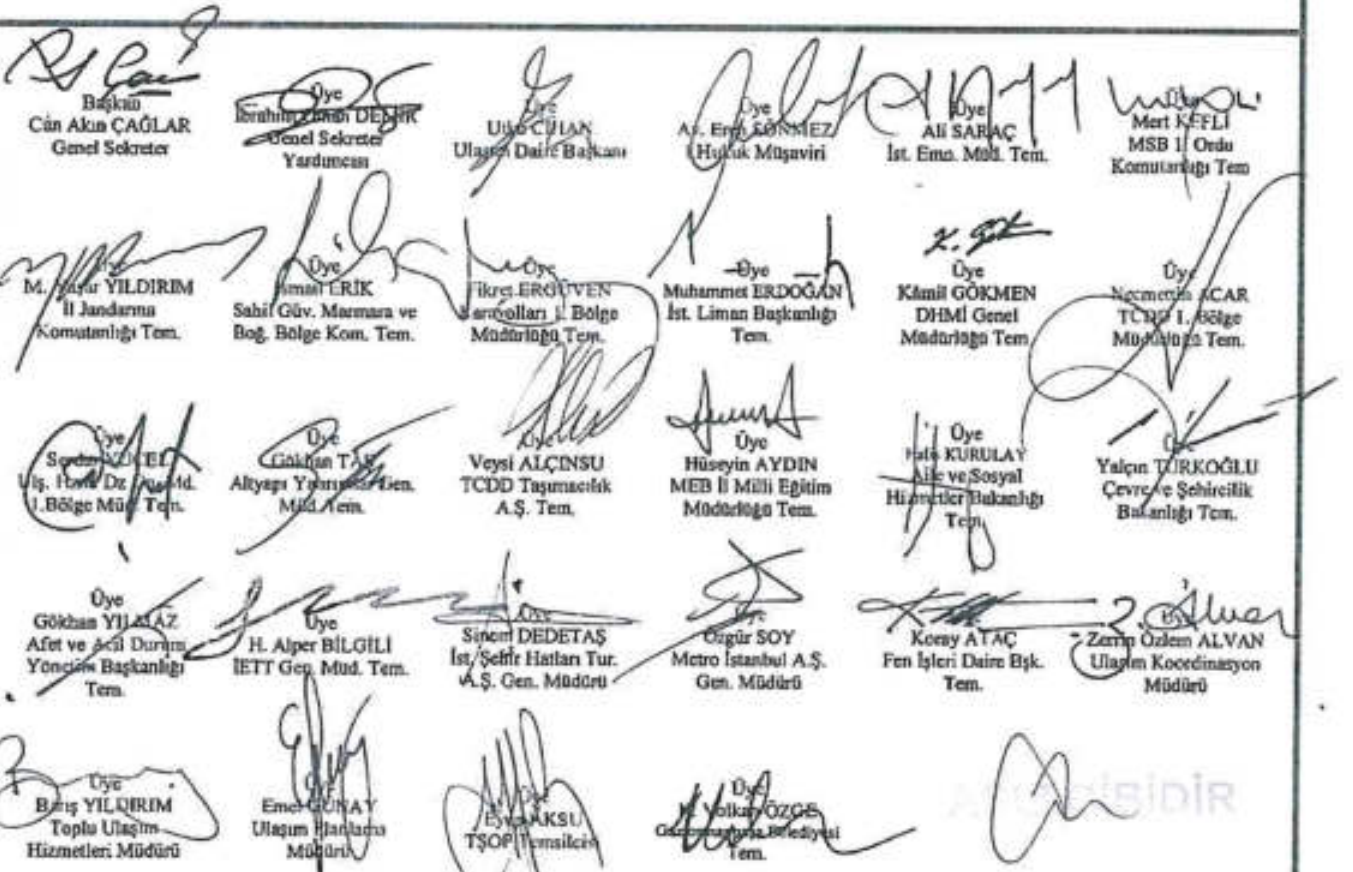 Başkan
Can Akın ÇAĞLAR
Genel Sekreter
Üye
İbrahim DEMİR
Genel Sekreter
Yardımcısı
Üye
Utku CİHAN
Ulaşım Daire Başkanı
Üye
Av. Eren SÖNMEZ
I Hukuk Müşaviri
Üye
Ali SARAÇ
İst. Emn. Müd. Tem.
Üye
Mert KEFLİ
MSB 1. Ordu
Komutanlığı Tem
M. Yaşar YILDIRIM
İl Jandarma
Komutanlığı Tem.
Üye
İsmail ERİK
Sahil Güv. Marmara ve
Boğ. Bölge Kom. Tem.
Üye
Fikret ERGÜVEN
Karayolları 1. Bölge
Müdürlüğü Tem.
Üye
Muhammet ERDOĞAN
İst. Liman Başkanlığı
Tem.
Üye
Kâmil GÖKMEN
DHMİ Genel
Müdürlüğü Tem
Üye
Necmettin ACAR
TCDD 1. Bölge
Müdürlüğü Tem.
Üye
Serdar YÜCEL
Ulş. Hava Dz. Md.
1.Bölge Müd. Tem.
Üye
Gökhan TAŞ
Altyapı Yatırımlar Gen.
Müd. Tem.
Üye
Veysi ALÇINSU
TCDD Taşımacılık
A.Ş. Tem.
Üye
Hüseyin AYDIN
MEB İl Milli Eğitim
Müdürlüğü Tem.
Üye
KURULAY
Aile ve Sosyal
Hizmetler Bakanlığı
Tem.
Yalçın TÜRKOĞLU
Çevre ve Şehircilik
Bakanlığı Tem.
Üye
Gökhan YILMAZ
Afet ve Acil Durum
Yönetim Başkanlığı
Tem.
Üye
H. Alper BİLGİLİ
İETT Gen. Müd. Tem.
Üye
Sinem DEDETAŞ
İst. Şehir Hatları Tur.
A.Ş. Gen. Müdürü
Üye
Özgür SOY
Metro İstanbul A.Ş.
Gen. Müdürü
Koray ATAÇ
Fen İşleri Daire Bşk.
Tem.
Zerrin Özlem ALVAN
Ulaşım Koordinasyon
Müdürü
Üye
Barış YILDIRIM
Toplu Ulaşım
Hizmetleri Müdürü
Emel GÜNAY
Ulaşım Planlama
Müdürü
Üye
Eyüp AKSU
TŞOF Temsilcisi
Üye
Volkan ÖZGE
Gaziosmanpaşa Belediyesi
Tem.